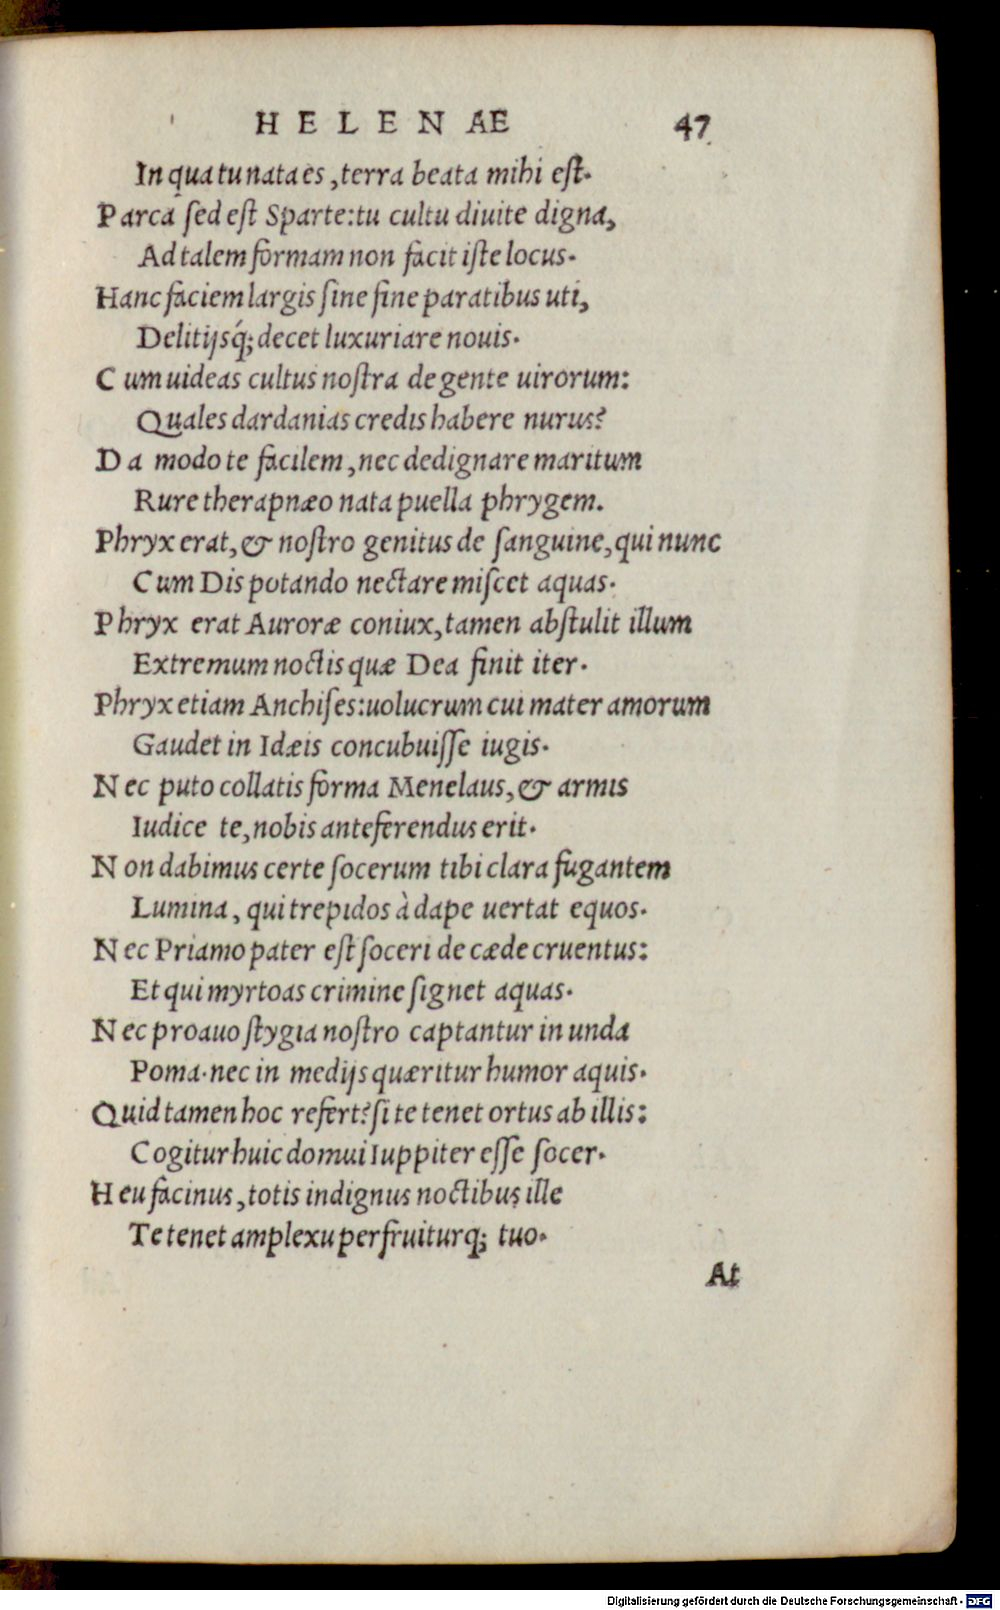 HELENAE 47
In qua tu nata es, terra beata mihi est.
Parca sed est Sparte: tu cultu diuite digna,
Ad talem formam non facit iste locus.
Hanc faciem largis sine fine paratibus uti,
Delitijsq́; decet luxuriare nouis.
Cum uideas cultus nostra de gente uirorum:
Quales dardanias credis habere nurus?
Da modo te facilem, nec dedignare maritum
Rure therapnæo nata puella phrygem.
Phryx erat, & nostro genitus de sanguine, qui nunc
Cum Dis potando nectare miscet aquas.
Phryx erat Auroræ coniux, tamen abstulit illum
Extremum noctis quæ Dea finit iter.
Phryx etiam Anchises: uolucrum cui mater amorum
Gaudet in Idæis concubuisse iugis.
Nec puto collatis forma Menelaus, & armis
Iudice te, nobis anteferendus erit.
Non dabimus certe socerum tibi clara fugantem
Lumina, qui trepidos à dape uertat equos.
Nec Priamo pater est soceri de cæde cruentus:
Et qui myrtoas crimine signet aquas.
Nec proauo stygia nostro captantur in unda
Poma. nec in medijs quæritur humor aquis.
Quid tamen hoc refert? si te tenet ortus ab illis:
Cogitur huic domui Iuppiter esse socer.
Heu facinus, totis indignus noctibus ille
Te tenet amplexu perfruiturq; tuo.
At
Digitalisierung gefördert durch die Deutsche Forschungsgemeinschaft - DFG